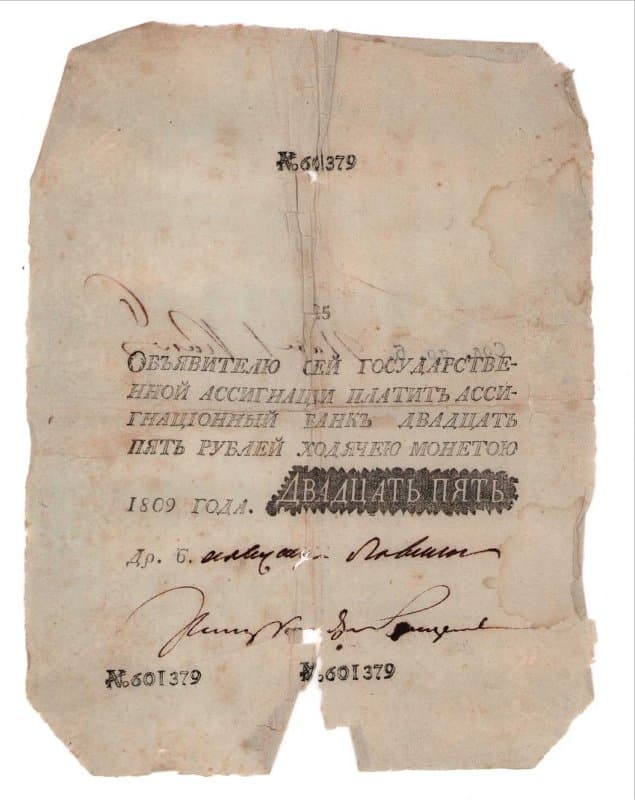 №601379
25
ОБЪЯВИТЕЛЮ СЕЙ ГОСУДАРСТВЕ-
ННОЙ АССИГНАЦIИ ПЛАТИТЪ АССИ-
ГНАЦIОННЫЙ БАНКЪ ДВАДЦАТЬ
ПЯТЬ РУБЛЕЙ ХОДЯЧЕЮ МОНЕТОЮ
1809 ГОДА. ДВАДЦАТЬ ПЯТЬ
Др. б.
№601379 №601379